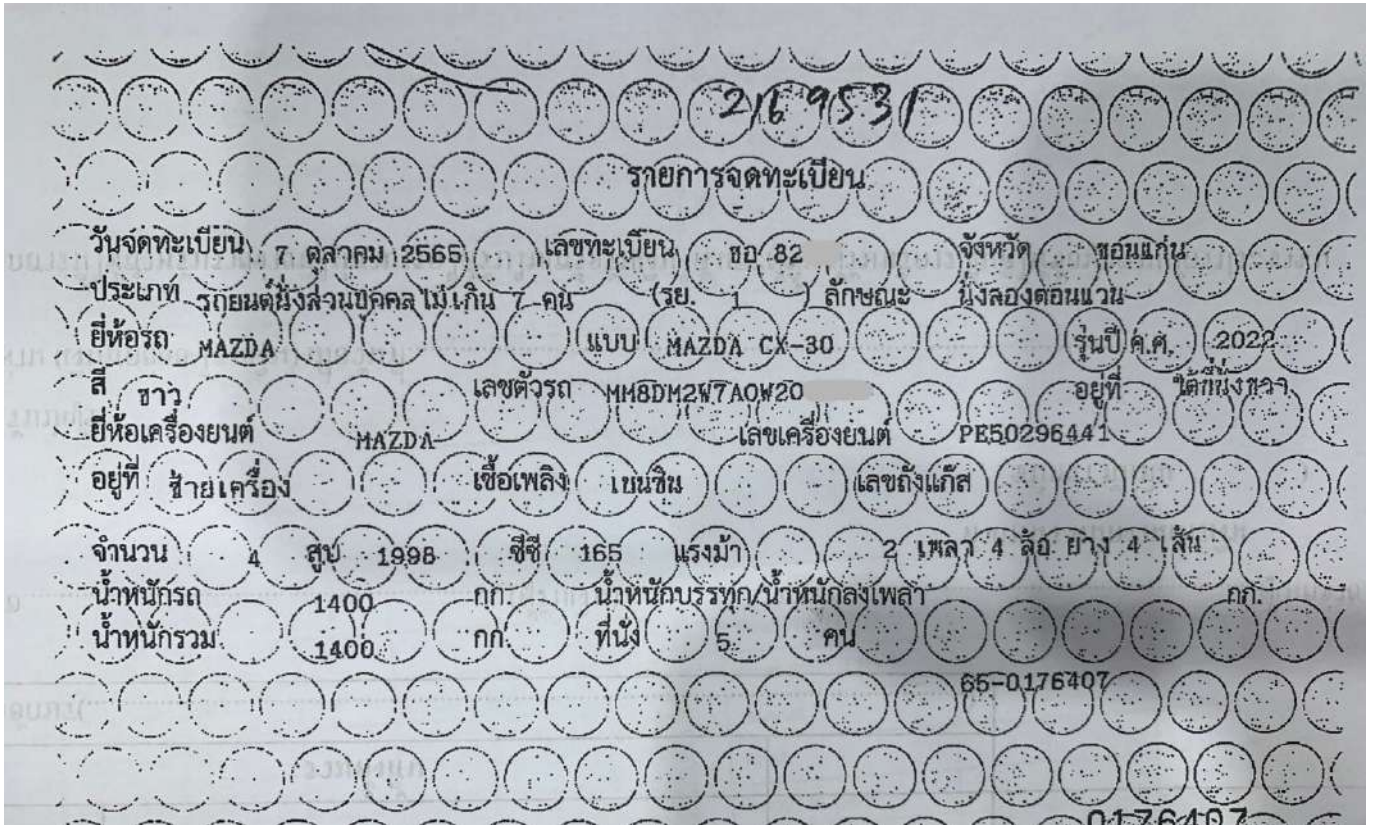 2169531
รายการจดทะเบียน
วันจดทะเบียน 7 ตุลาคม 2565 เลขทะเบียน ขอ 82 จังหวัด ขอนแก่น
ประเภท รถยนต์นั่งส่วนบุคคลไม่เกิน 7 คน (รย. 1 ) ลักษณะ นั่งสองตอนแวน
ยี่ห้อรถ MAZDA แบบ MAZDA CX-30 รุ่นปี ค.ศ. 2022
สี ขาว เลขตัวรถ MM8DM2W7A0W20 อยู่ที่ ใต้ที่นั่งขวา
ยี่ห้อเครื่องยนต์ MAZDA เลขเครื่องยนต์ PE50296441
อยู่ที่ ซ้ายเครื่อง เชื้อเพลิง เบนซิน เลขถังแก๊ส
จำนวน 4 สูบ 1998 ซีซี 165 แรงม้า 2 เพลา 4 ล้อ ยาง 4 เส้น
น้ำหนักรถ 1400 กก. น้ำหนักบรรทุก/น้ำหนักลงเพลา กก.
น้ำหนักรวม 1400 กก. ที่นั่ง 5 คน
65-0176407
0176407